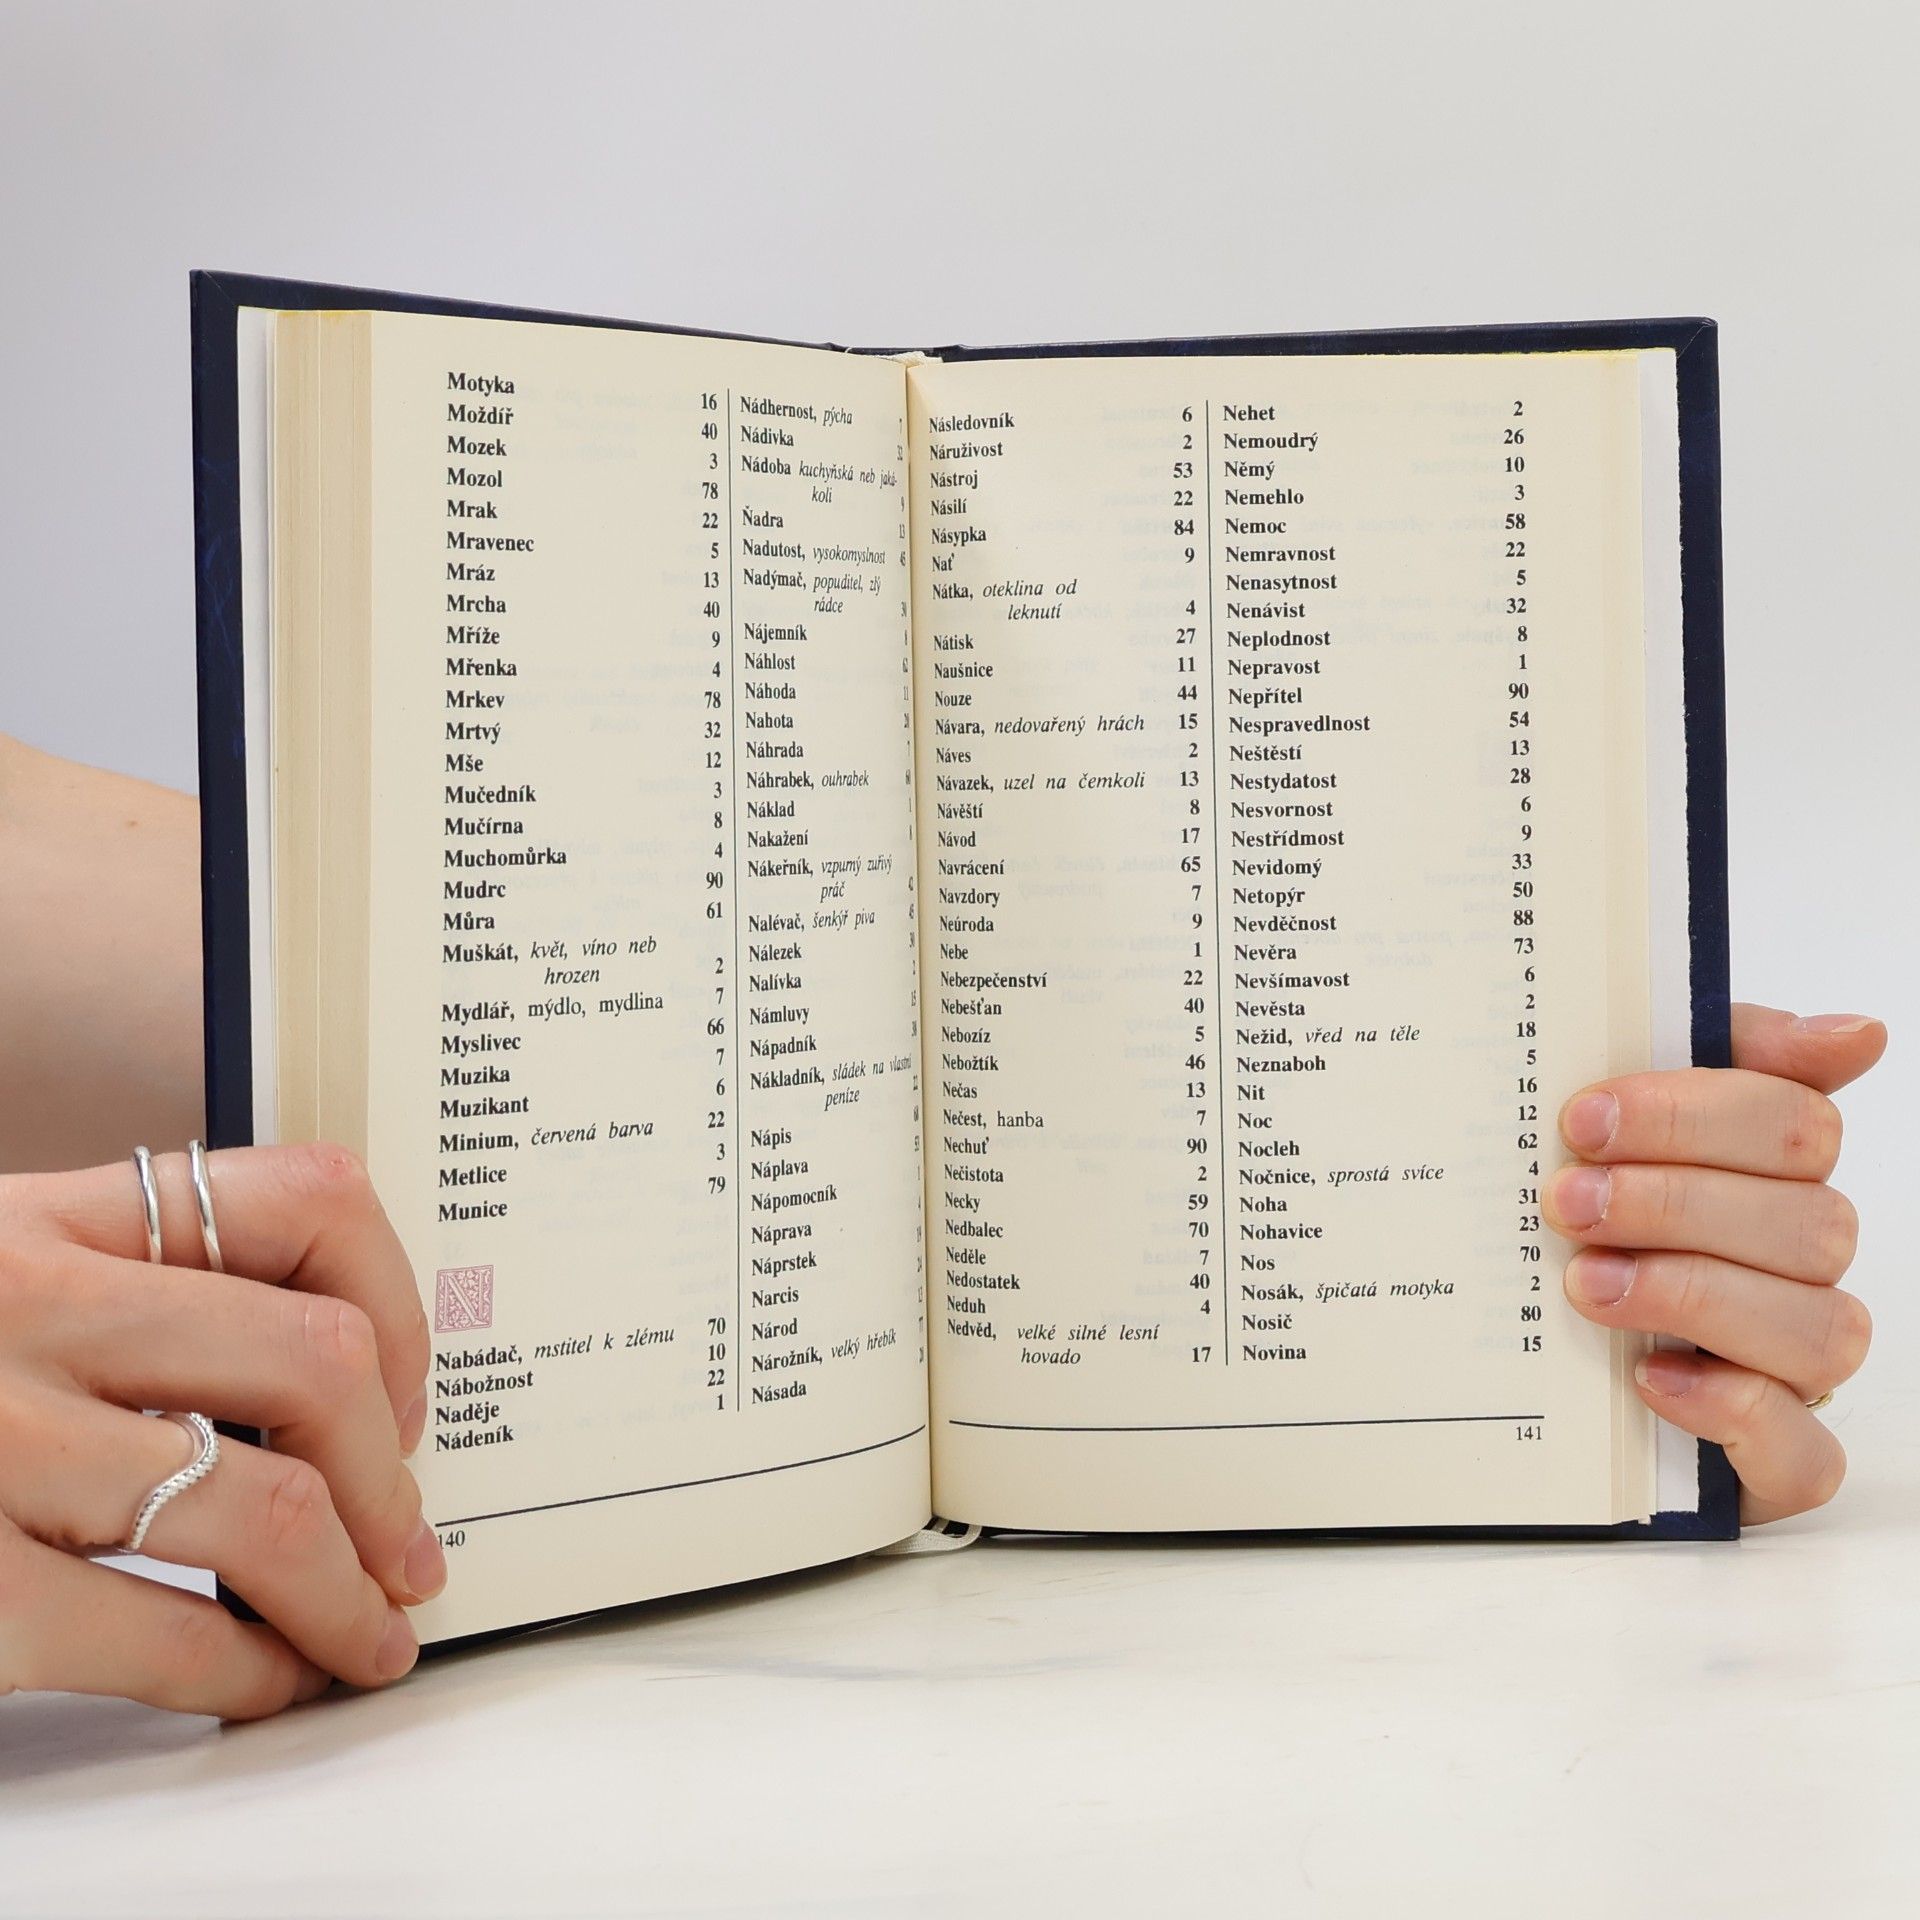 Motyka 16
Moždíř 40
Mozek 3
Mozol 78
Mrak 22
Mravenec 5
Mráz 13
Mrcha 40
Mříže 9
Mřenka 4
Mrkev 78
Mrtvý 32
Mše 12
Mučedník 3
Mučírna 8
Muchomůrka 4
Mudrc 90
Můra 61
Muškát, květ, víno neb
hrozen 2
Mydlář, mýdlo, mydlina 7
Myslivec 66
Muzika 7
Muzikant 6
Minium, červená barva 22
Metlice 3
Munice 79
N
Nabádač, mstitel k zlému 70
Nábožnost 10
Naděje 22
Nádeník 1
Nádhernost, pýcha 7
Nádivka 32
Nádoba kuchyňská neb jaká-
koli 9
Ňadra 13
Nadutost, vysokomyslnost 45
Nadýmač, popuditel, zlý
rádce
Nájemník 8
Náhlost
Náhoda 11
Nahota
Náhrada 7
Náhrabek, ouhrabek
Náklad 1
Nakažení
Nákeřník, vzpurný zuřivý
práč 42
Nalévač, šenkýř piva
Nálezek
Nalívka 2
Námluvy 15
Nápadník
Nákladník, sládek na vlastní
peníze 22
Nápis
Náplava
Nápomocník
Náprava
Náprstek
Narcis
Národ
Nárožník, velký hřebík
Násada
140
Následovník 6
Náruživost 2
Nástroj 53
Násilí 22
Násypka 84
Nať 9
Nátka, oteklina od
leknutí 4
Nátisk 27
Naušnice 11
Nouze 44
Návara, nedovařený hrách 15
Náves 2
Návazek, uzel na čemkoli 13
Návěští 8
Návod 17
Navrácení 65
Navzdory 7
Neúroda 9
Nebe 1
Nebezpečenství 22
Nebešťan 40
Nebozíz 5
Nebožtík 46
Nečas 13
Nečest, hanba 7
Nechuť 90
Nečistota 2
Necky 59
Nedbalec 70
Neděle 7
Nedostatek 40
Neduh 4
Nedvěd, velké silné lesní
hovado 17
Nehet 2
Nemoudrý 26
Němý 10
Nemehlo 3
Nemoc 58
Nemravnost 22
Nenasytnost 5
Nenávist 32
Neplodnost 8
Nepravost 1
Nepřítel 90
Nespravedlnost 54
Neštěstí 13
Nestydatost 28
Nesvornost 6
Nestřídmost 9
Nevidomý 33
Netopýr 50
Nevděčnost 88
Nevěra 73
Nevšímavost 6
Nevěsta 2
Nežid, vřed na těle 18
Neznaboh 5
Nit 16
Noc 12
Nocleh 62
Nočnice, sprostá svíce 4
Noha 31
Nohavice 23
Nos 70
Nosák, špičatá motyka 2
Nosič 80
Novina 15
141